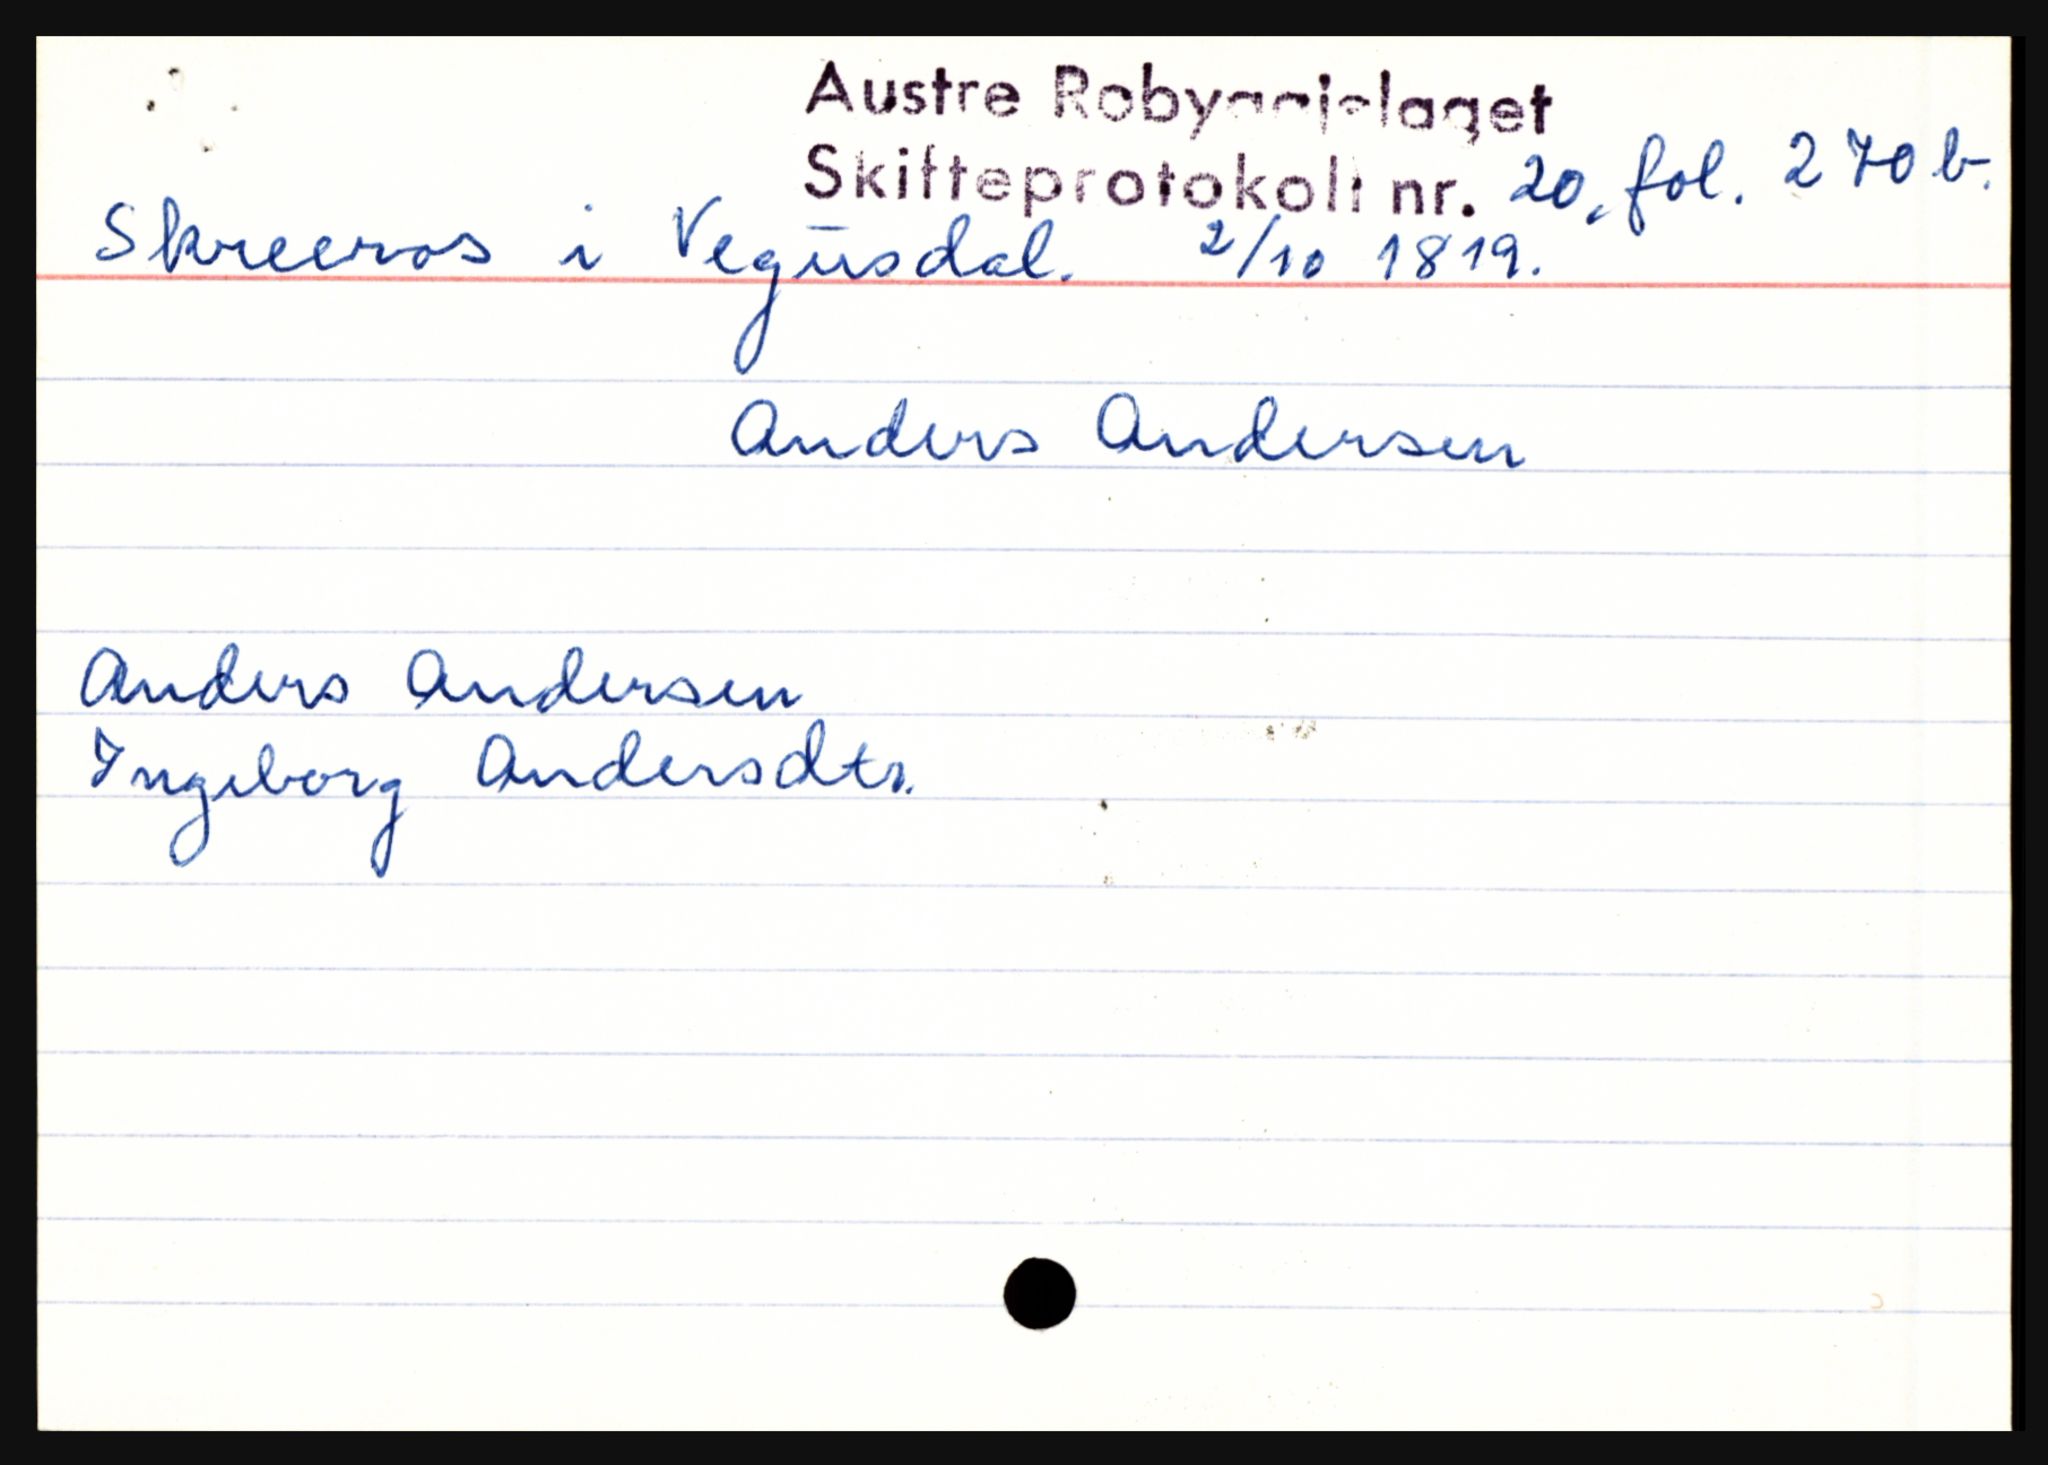 Austre Robyggjelaget
Skifteprotokoll nr. 20, fol. 270b.
Skreeros i Vegusdal. 2/10 1819.
Anders Andersen
Anders Andersen
Ingeborg Andersdtr.